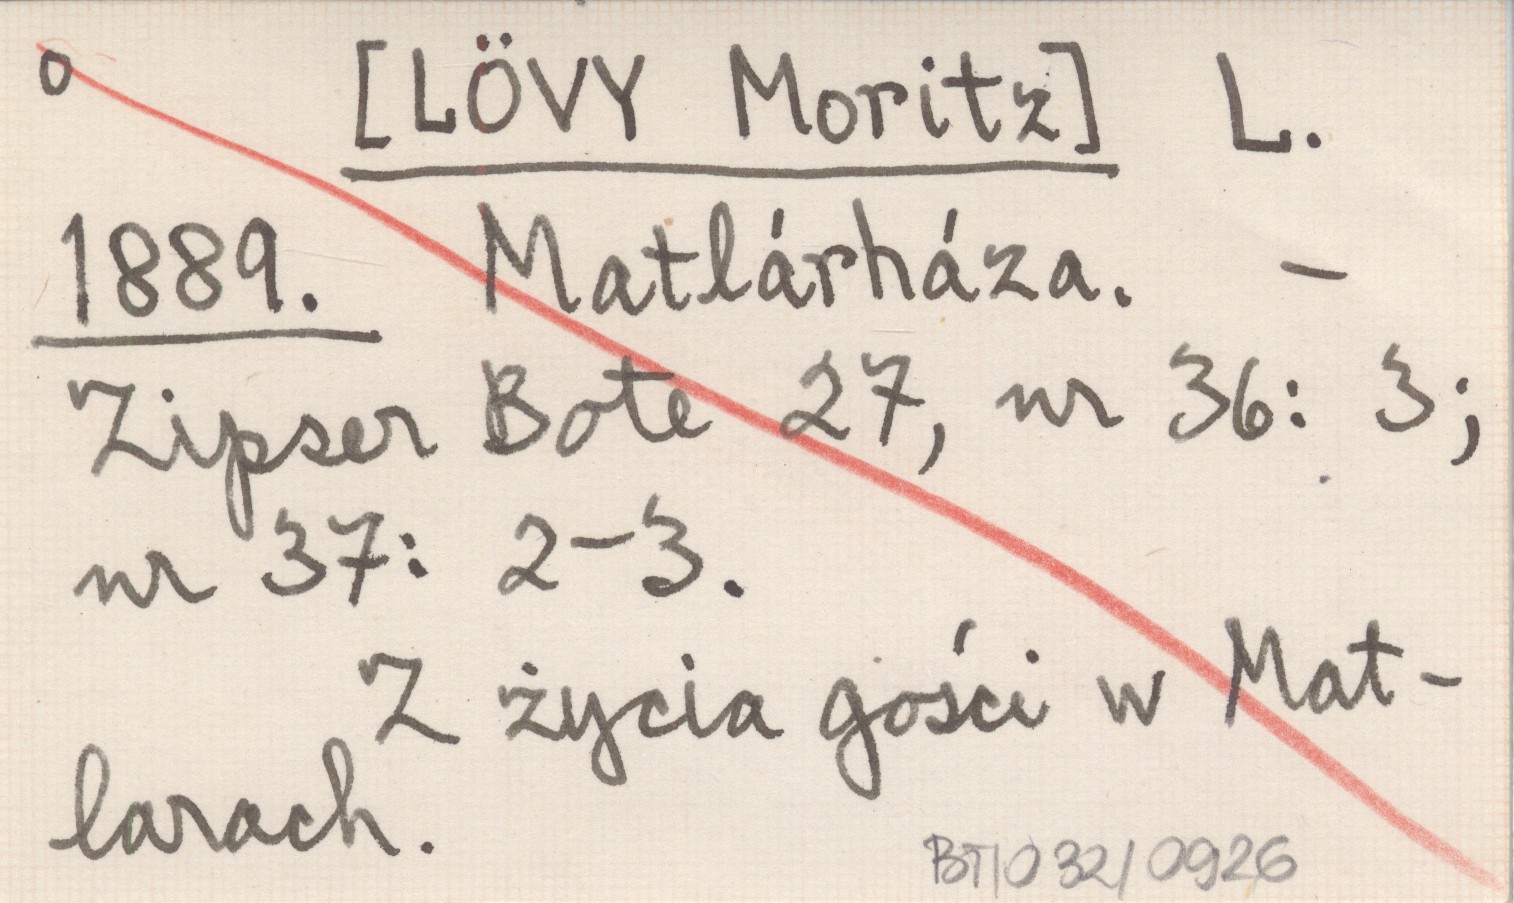 o [LÖVY Moritz] L.
1889. Matlárháza. –
Zipser Bote 27, nr 36: 3;
nr 37: 2–3.
Z życia gości w Mat-
larach.
BT/032/0926